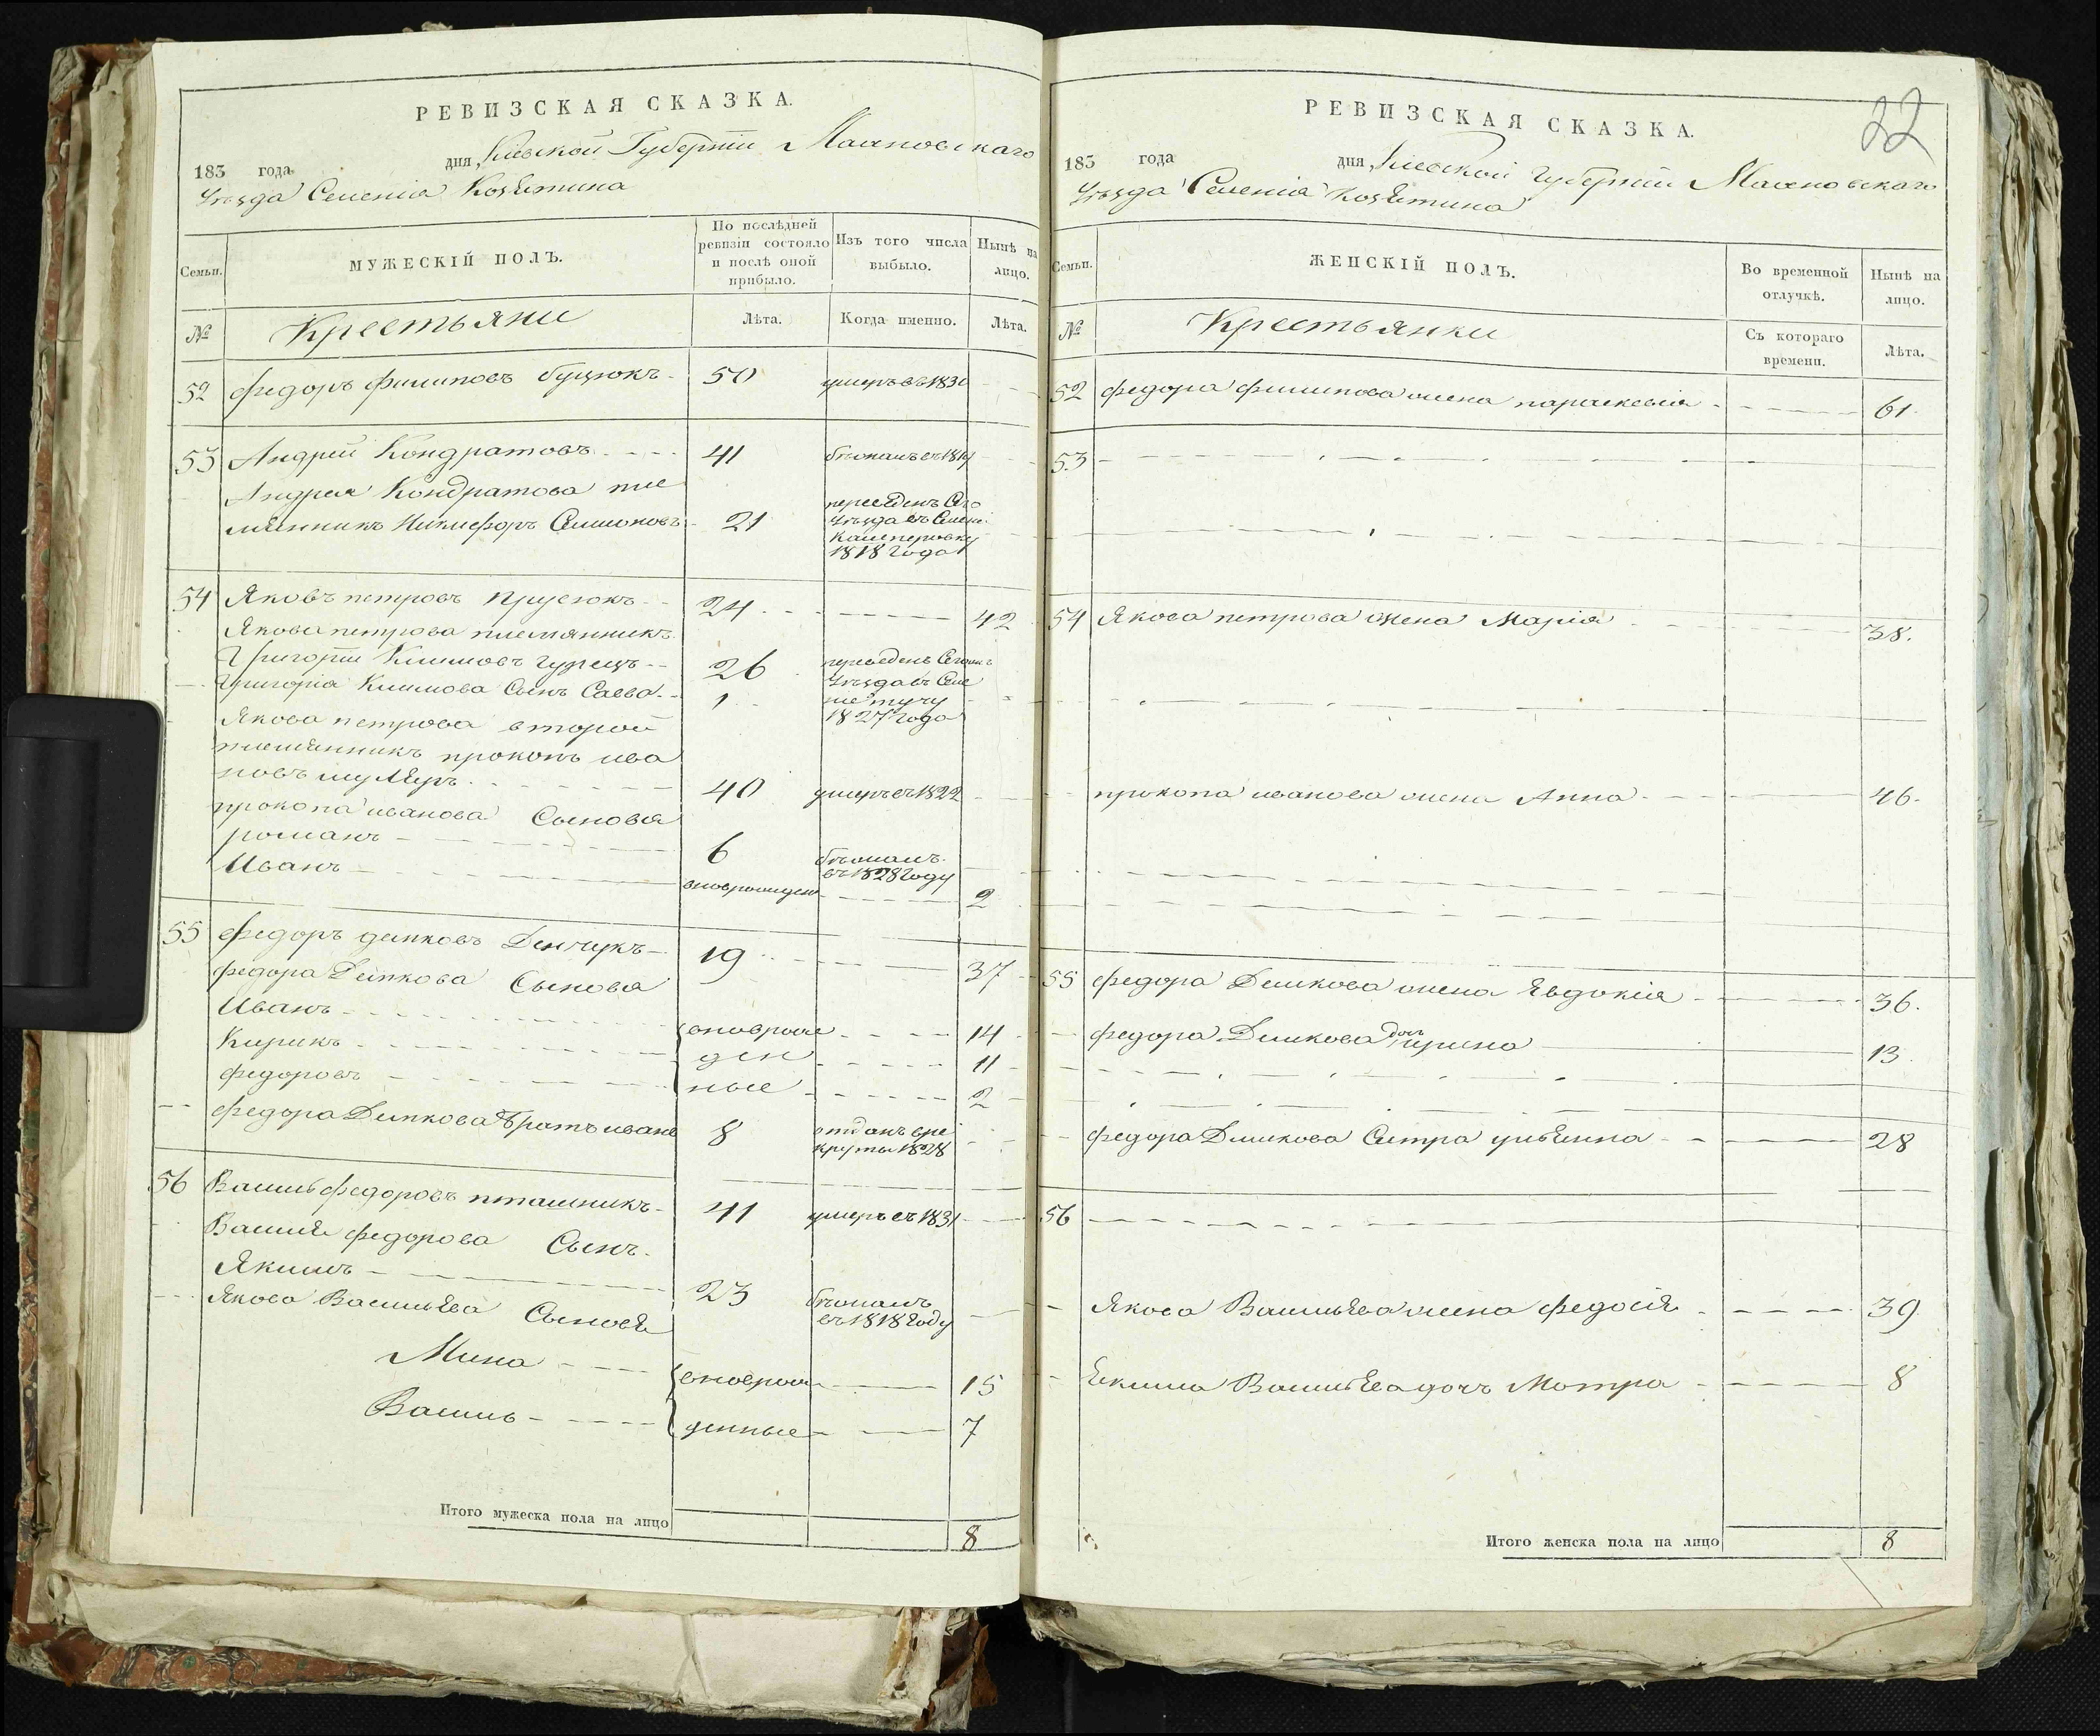 РЕВИЗСКАЯ СКАЗКА.
183 года дня Кіевской Губерніи Махновскаго
Уѣзда Селенія Козятина
Семьи. МУЖЕСКІЙ ПОЛЪ. По послѣдней ревизіи состояло и послѣ оной прибыло. Изъ того числа выбыло. Нынѣ на лицо.
№ Крестьяни Лѣта. Когда именно. Лѣта.
52 федоръ филиповъ буцюкъ 50 умеръ въ 1830
53 Андрей Кондратовъ 41 бѣжалъ въ 1819
Андрея Кондратова пле
мянникъ Никифоръ Симионовъ 21 переведенъ Сего
Уѣзда въ Селені
Кашперовку
1818 года
54 Яковъ петровъ прусюкъ 24 42
Якова петрова племянникъ
Григорій Климовъ гурецъ 26 переведенъ Сегожъ
Григорія Климова Сынъ Савва 1 Уѣзда въ Селе
ніе тучу
1827 года
Якова петрова второй
племянникъ прокопъ ива
новъ 40 умеръ въ 1822
прокопа иванова Сыновя
романъ 6 бѣжалъ
въ 1828 году
Иванъ вноврожден 2
55 федоръ демковъ Демчукъ 19 37
федора Демкова Сыновя
Иванъ вноврож 14
Кирикъ ден 11
федоровъ ные 2
федора Демкова братъ иванъ 8 отданъ вре
круты 1828
56 Василь федоровъ пташникъ 41 умеръ въ 1831
Василя федорова Сынъ
Якимъ 23 бѣжалъ
въ 1818 году
Якова Васильева Сыновя
Мина вноврож 15
Василь денные 7
Итого мужеска пола на лицо 8
22
РЕВИЗСКАЯ СКАЗКА.
183 года дня Кіевской Губерніи Махновскаго
Уѣзда Селенія Козятина
Семьи. ЖЕНСКІЙ ПОЛЪ. Во временной отлучкѣ. Нынѣ на лицо.
№ Крестьянки Съ котораго времени. Лѣта.
52 федора филипова жена параскевія 61
53
54 Якова петрова жена Марія 38.
прокопа иванова жена Анна 46.
55 федора Демкова жена Явдокія 36.
федора Демкова дочь ирина 13
федора Демкова Систра уліянна 28
56
Якова Васильева жена федосія 39
Екима Васильева дочъ Мотра 8
Итого женска пола на лицо 8